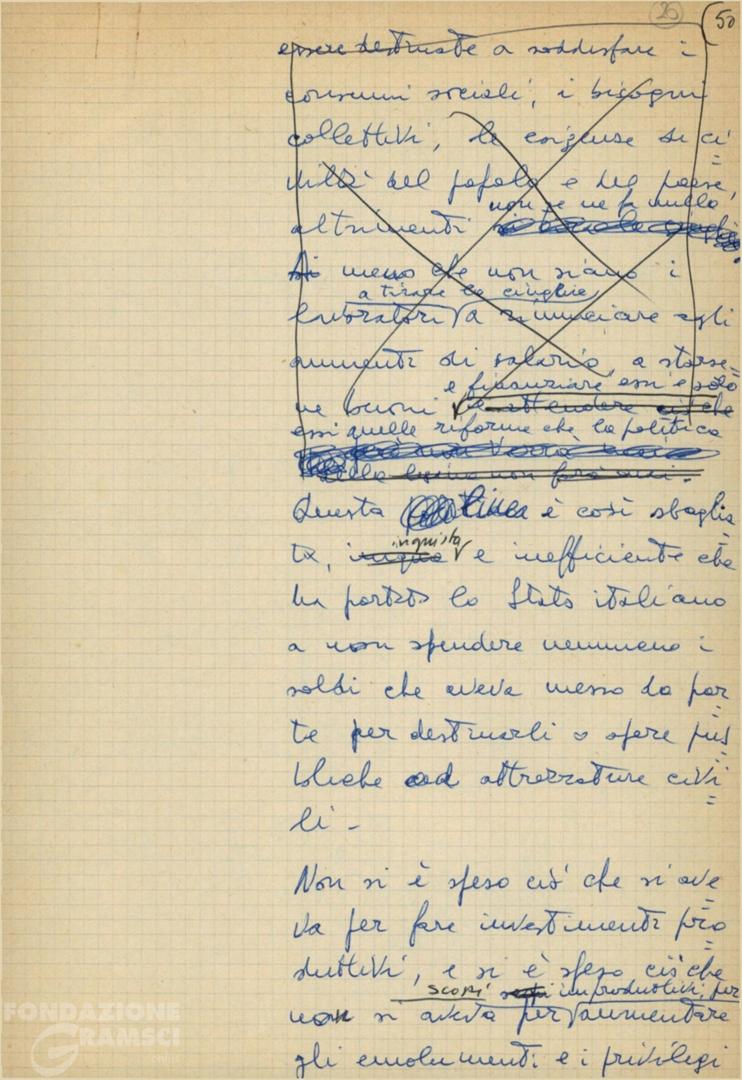 20 50
essere destinate a soddisfare i
consumi sociali, i bisogni
collettivi, le esigenze di ci=
viltà del popolo e del paese,
non se ne fa nulla,
altrimenti
Ai meno che non siano i
a tirare la cinghia,
lavoratori a rinunciare agli
aumenti di salario, a starse=
e finanziare essi e solo
ne buoni e attendere ciò che
essi quelle riforme che la politica
non farà mai.
Questa linea è così sbaglia=
ingiusta
ta, iniqua e inefficiente che
ha portato lo Stato italiano
a non spendere nemmeno i
soldi che aveva messo da par=
te per destinarli a opere pub=
bliche ad attrezzature civi=
li -
Non si è speso ciò che si ave=
va per fare investimenti pro=
duttivi, e si è speso ciò che
scopi improduttivi, per
non si aveva per aumentare
gli emolumenti e i privilegi
FONDAZIONE
GRAMSCI
onlus